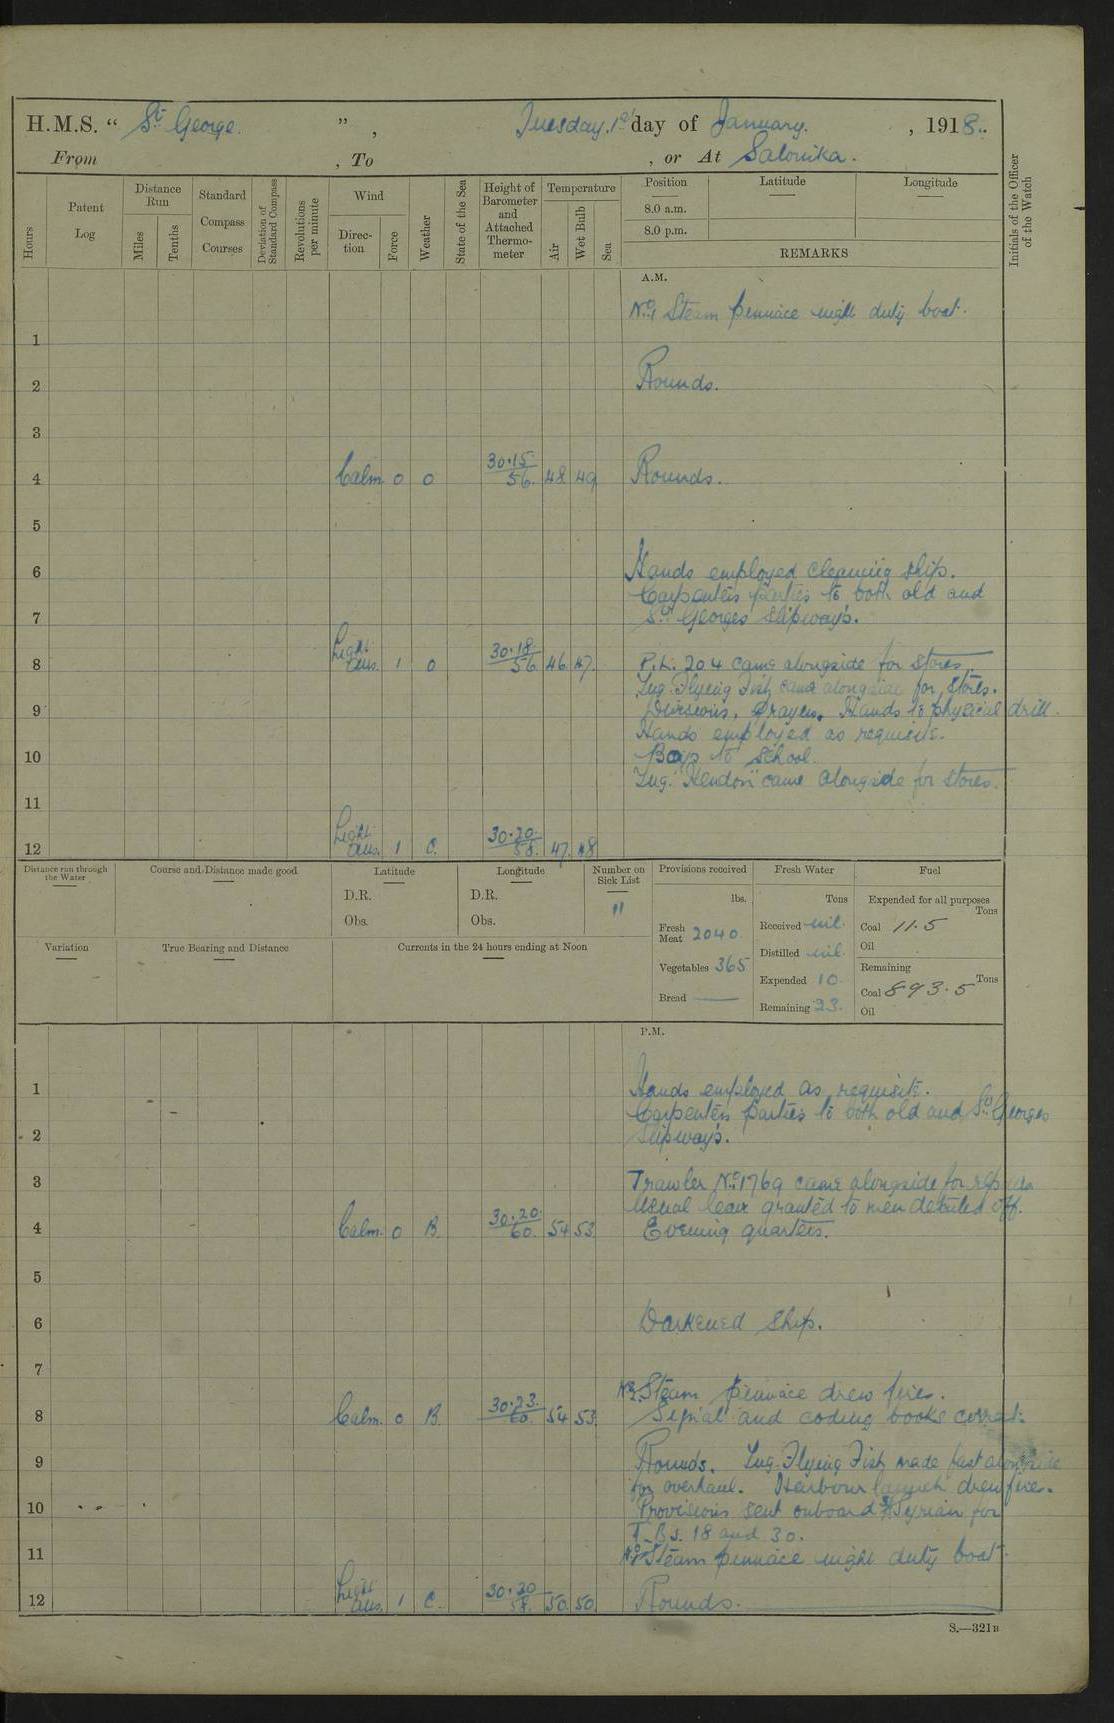 H.M.S. “ St George. ” , Tuesday. 1st day of January. , 1918.
From , To , or At Salonika.
Hours
Patent Log
Distance Run
Miles
Tenths
Standard Compass Courses
Deviation of Standard Compass
Revolutions per minute
Wind
Direction
Force
Weather
State of the Sea
Height of Barometer and Attached Thermometer
Temperature
Air
Wet Bulb
Sea
Position
8.0 a.m.
8.0 p.m.
Latitude
Longitude
REMARKS
Initials of the Officer of the Watch
A.M.
No 1 Steam pinnace night duty boat.
1
2 Rounds.
3
4 Calm 0 0 30.15 56. 48 49 Rounds.
5
6 Hands employed cleaning ship.
Carpenters parties to both old and
7 St Georges slipways.
8 Light Airs. 1 0 30.18 56 46. 47. P.L. 204 came alongside for stores.
Tug. Flying Fish came alongside for stores.
9 Divisions. Prayers. Hands to physical drill.
Hands employed as requisite.
10 Boys to School.
Tug. "Hendon" came alongside for stores.
11
12 Light Airs. 1 C. 30.20. 58. 47. 48
Distance run through the Water
Course and Distance made good
Latitude
D.R.
Obs.
Longitude
D.R.
Obs.
Number on Sick List
11
Provisions received
lbs.
Fresh Meat 2040.
Vegetables 365
Bread ——
Fresh Water
Tons
Received nil.
Distilled nil.
Expended 10
Remaining 23.
Fuel
Expended for all purposes
Tons
Coal 11.5
Oil
Remaining
Tons
Coal 893.5
Oil
Variation
True Bearing and Distance
Currents in the 24 hours ending at Noon
P.M.
1 Hands employed as requisite.
Carpenters parties to both old and St Georges
2 slipways.
3 Trawler No 1769 came alongside for repairs
Usual leave granted to men detailed off.
4 Calm. 0 B. 30.20. 60. 54 53 Evening quarters.
5
6 Darkened Ship.
7
No 2 Steam pinnace drew fires.
8 Calm. 0 B. 30.23. 60. 54 53. Signal and coding books correct.
9 Rounds. Tug. Flying Fish made fast alongside
for overhaul. Harbour launch drew fires.
10 Provisions sent onboard SS Syrian for
T.Bs. 18 and 30.
11 No 1 Steam pinnace night duty boat.
12 Light Airs. 1 C. 30.20 58. 50. 50. Rounds.
S.—321B